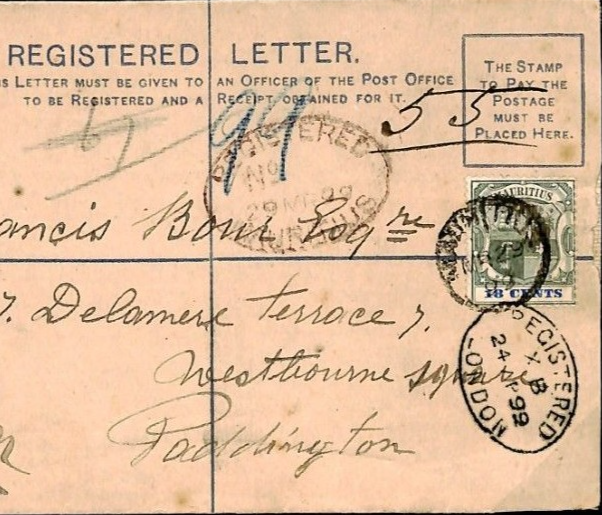 REGISTERED LETTER.
IS LETTER MUST BE GIVEN TO AN OFFICER OF THE POST OFFICE
TO BE REGISTERED AND A RECEIPT OBTAINED FOR IT.
THE STAMP
TO PAY THE
POSTAGE
MUST BE
PLACED HERE.
99
55
REGISTERED
No
29 MR 99
MAURITIUS
MAURITIUS
18 CENTS
MAURITIUS
MR 29
99
ancis Esqre
7. Delamere terrace 7.
Westbourne square
Paddington
REGISTERED
X B
24 99
LONDON